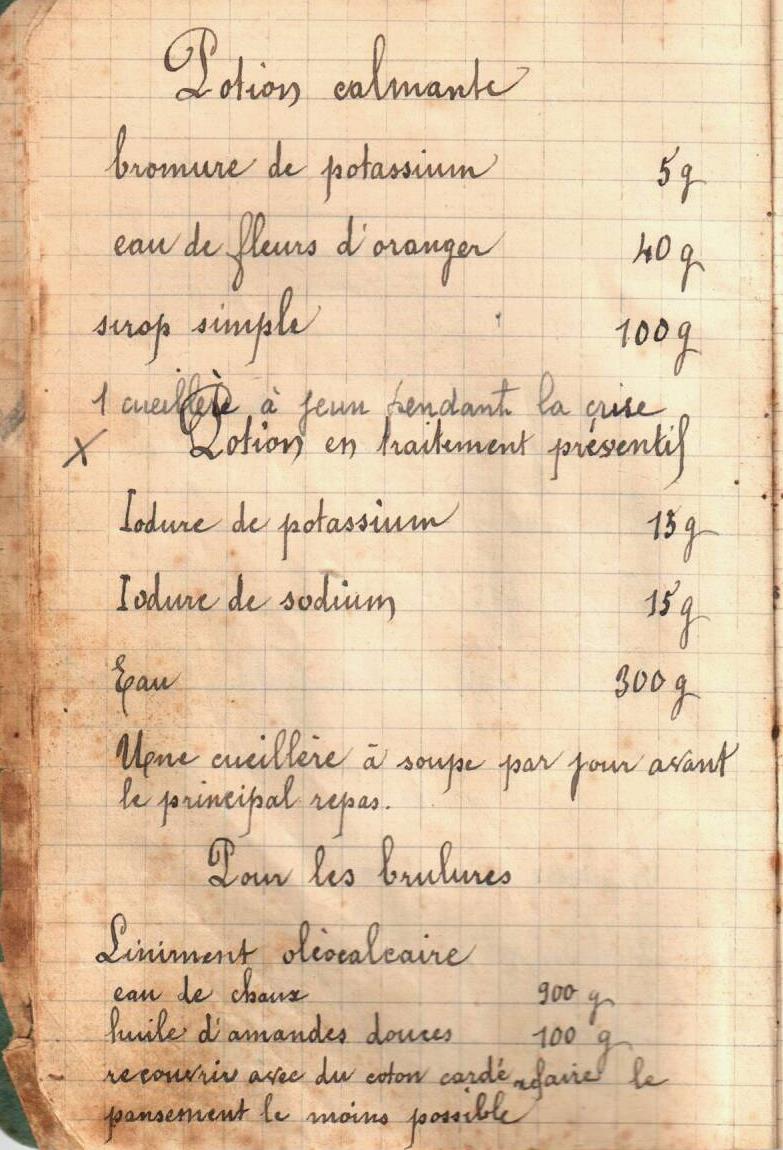 Potion calmante
bromure de potassium 5g
eau de fleurs d'oranger 40g
sirop simple 100g
1 cueillère à jeun pendant la crise
X Potion en traitement préventif
Iodure de potassium 15g
Iodure de sodium 15g
Eau 300g
Une cueillère à soupe par jour avant
le principal repas.
Pour les brulures
Liniment oléocalcaire
eau de chaux 900 g
huile d'amandes douces 100 g
recouvrir avec du coton cardé faire le
pansement le moins possible